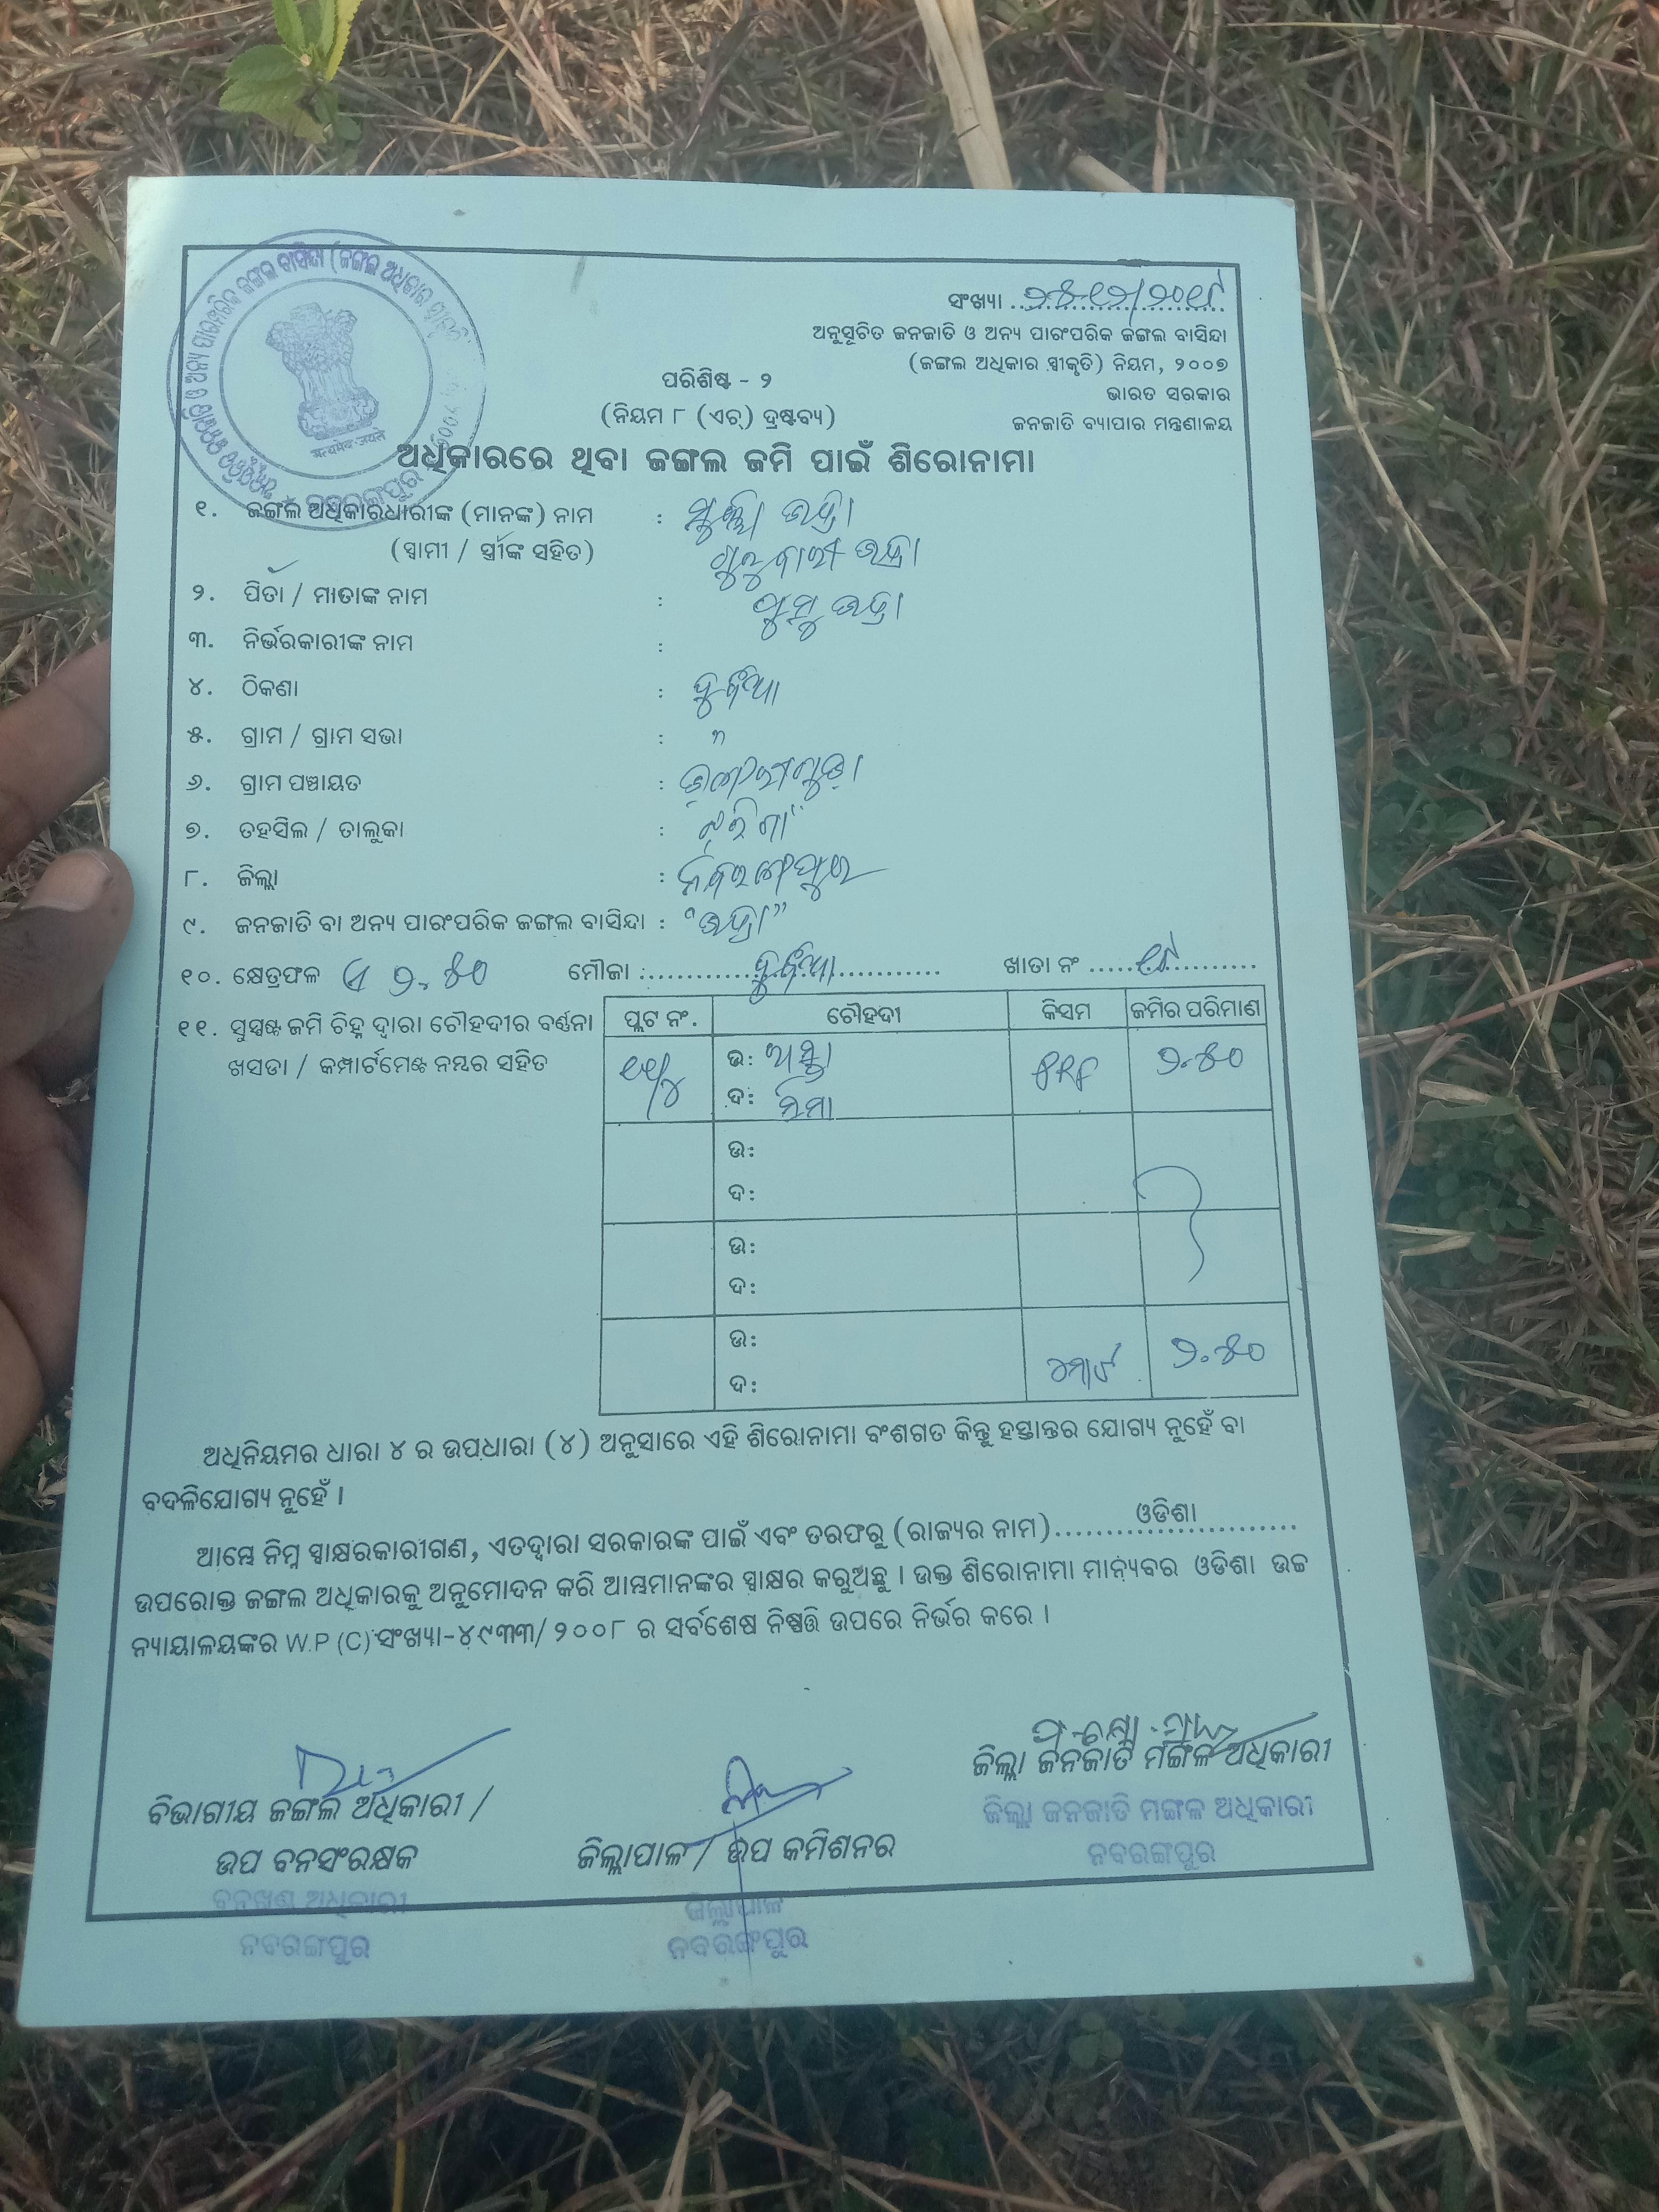 ସଂଖ୍ୟା
ଅନୁସୂଚିତ ଜନଜାତି ଓ ଅନ୍ୟ ପାରଂପରିକ ଜଙ୍ଗଲ ବାସିନ୍ଦା
(ଜଙ୍ଗଲ ଅଧିକାର ସ୍ୱୀକୃତି) ନିୟମ, ୨୦୦୭
ଭାରତ ସରକାର
ଜନଜାତି ବ୍ୟାପାର ମନ୍ତ୍ରଣାଳୟ
ପରିଶିଷ୍ଟ - ୨
(ନିୟମ ୮ (ଏଚ୍) ଦ୍ରଷ୍ଟବ୍ୟ)
ଅଧିକାରରେ ଥିବା ଜଙ୍ଗଲ ଜମି ପାଇଁ ଶିରୋନାମା
୧. ଜଙ୍ଗଲ ଅଧିକାରଧାରୀଙ୍କ (ମାନଙ୍କ) ନାମ :
(ସ୍ୱାମୀ / ସ୍ତ୍ରୀଙ୍କ ସହିତ)
୨. ପିତା / ମାତାଙ୍କ ନାମ :
୩. ନିର୍ଭରକାରୀଙ୍କ ନାମ :
୪. ଠିକଣା :
୫. ଗ୍ରାମ / ଗ୍ରାମ ସଭା : "
୬. ଗ୍ରାମ ପଞ୍ଚାୟତ :
୭. ତହସିଲ / ତାଲୁକା : ଝରିଗାଁ
୮. ଜିଲ୍ଲା : ନବରଙ୍ଗପୁର
୯. ଜନଜାତି ବା ଅନ୍ୟ ପାରଂପରିକ ଜଙ୍ଗଲ ବାସିନ୍ଦା :
୧୦. କ୍ଷେତ୍ରଫଳ ଏ ୨.୫୦ ମୌଜା ଖାତା ନଂ
୧୧. ସୁସ୍ପଷ୍ଟ ଜମି ଚିହ୍ନ ଦ୍ୱାରା ଚୌହଦୀର ବର୍ଣ୍ଣନା
ଖସଡା / କମ୍ପାର୍ଟମେଣ୍ଟ ନମ୍ବର ସହିତ
ପ୍ଲଟ ନଂ. ଚୌହଦୀ କିସମ ଜମିର ପରିମାଣ
ଉ: ୨.୫୦
ଦ:
ଉ:
ଦ:
ଉ:
ଦ:
ଉ: ୨.୫୦
ଦ:
ଅଧିନିୟମର ଧାରା ୪ ର ଉପଧାରା (୪) ଅନୁସାରେ ଏହି ଶିରୋନାମା ବଂଶଗତ କିନ୍ତୁ ହସ୍ତାନ୍ତର ଯୋଗ୍ୟ ନୁହେଁ ବା
ବଦଳିଯୋଗ୍ୟ ନୁହେଁ ।
ଆମ୍ଭେ ନିମ୍ନ ସ୍ୱାକ୍ଷରକାରୀଗଣ, ଏତଦ୍ୱାରା ସରକାରଙ୍କ ପାଇଁ ଏବଂ ତରଫରୁ (ରାଜ୍ୟର ନାମ) ଓଡିଶା
ଉପରୋକ୍ତ ଜଙ୍ଗଲ ଅଧିକାରକୁ ଅନୁମୋଦନ କରି ଆମ୍ଭମାନଙ୍କର ସ୍ୱାକ୍ଷର କରୁଅଛୁ । ଉକ୍ତ ଶିରୋନାମା ମାନ୍ୟବର ଓଡିଶା ଉଚ୍ଚ
ନ୍ୟାୟାଳୟଙ୍କର W.P (C) ସଂଖ୍ୟା-୪୯୩୩/ ୨୦୦୮ ର ସର୍ବଶେଷ ନିଷ୍ପତ୍ତି ଉପରେ ନିର୍ଭର କରେ ।
ବିଭାଗୀୟ ଜଙ୍ଗଲ ଅଧିକାରୀ /
ଉପ ବନସଂରକ୍ଷକ
ବନଖଣ୍ଡ ଅଧିକାରୀ
ନବରଙ୍ଗପୁର
ଜିଲ୍ଲାପାଳ / ଉପ କମିଶନର
ଜିଲ୍ଲାପାଳ
ନବରଙ୍ଗପୁର
ଜିଲ୍ଲା ଜନଜାତି ମଙ୍ଗଳ ଅଧିକାରୀ
ଜିଲ୍ଲା ଜନଜାତି ମଙ୍ଗଳ ଅଧିକାରୀ
ନବରଙ୍ଗପୁର